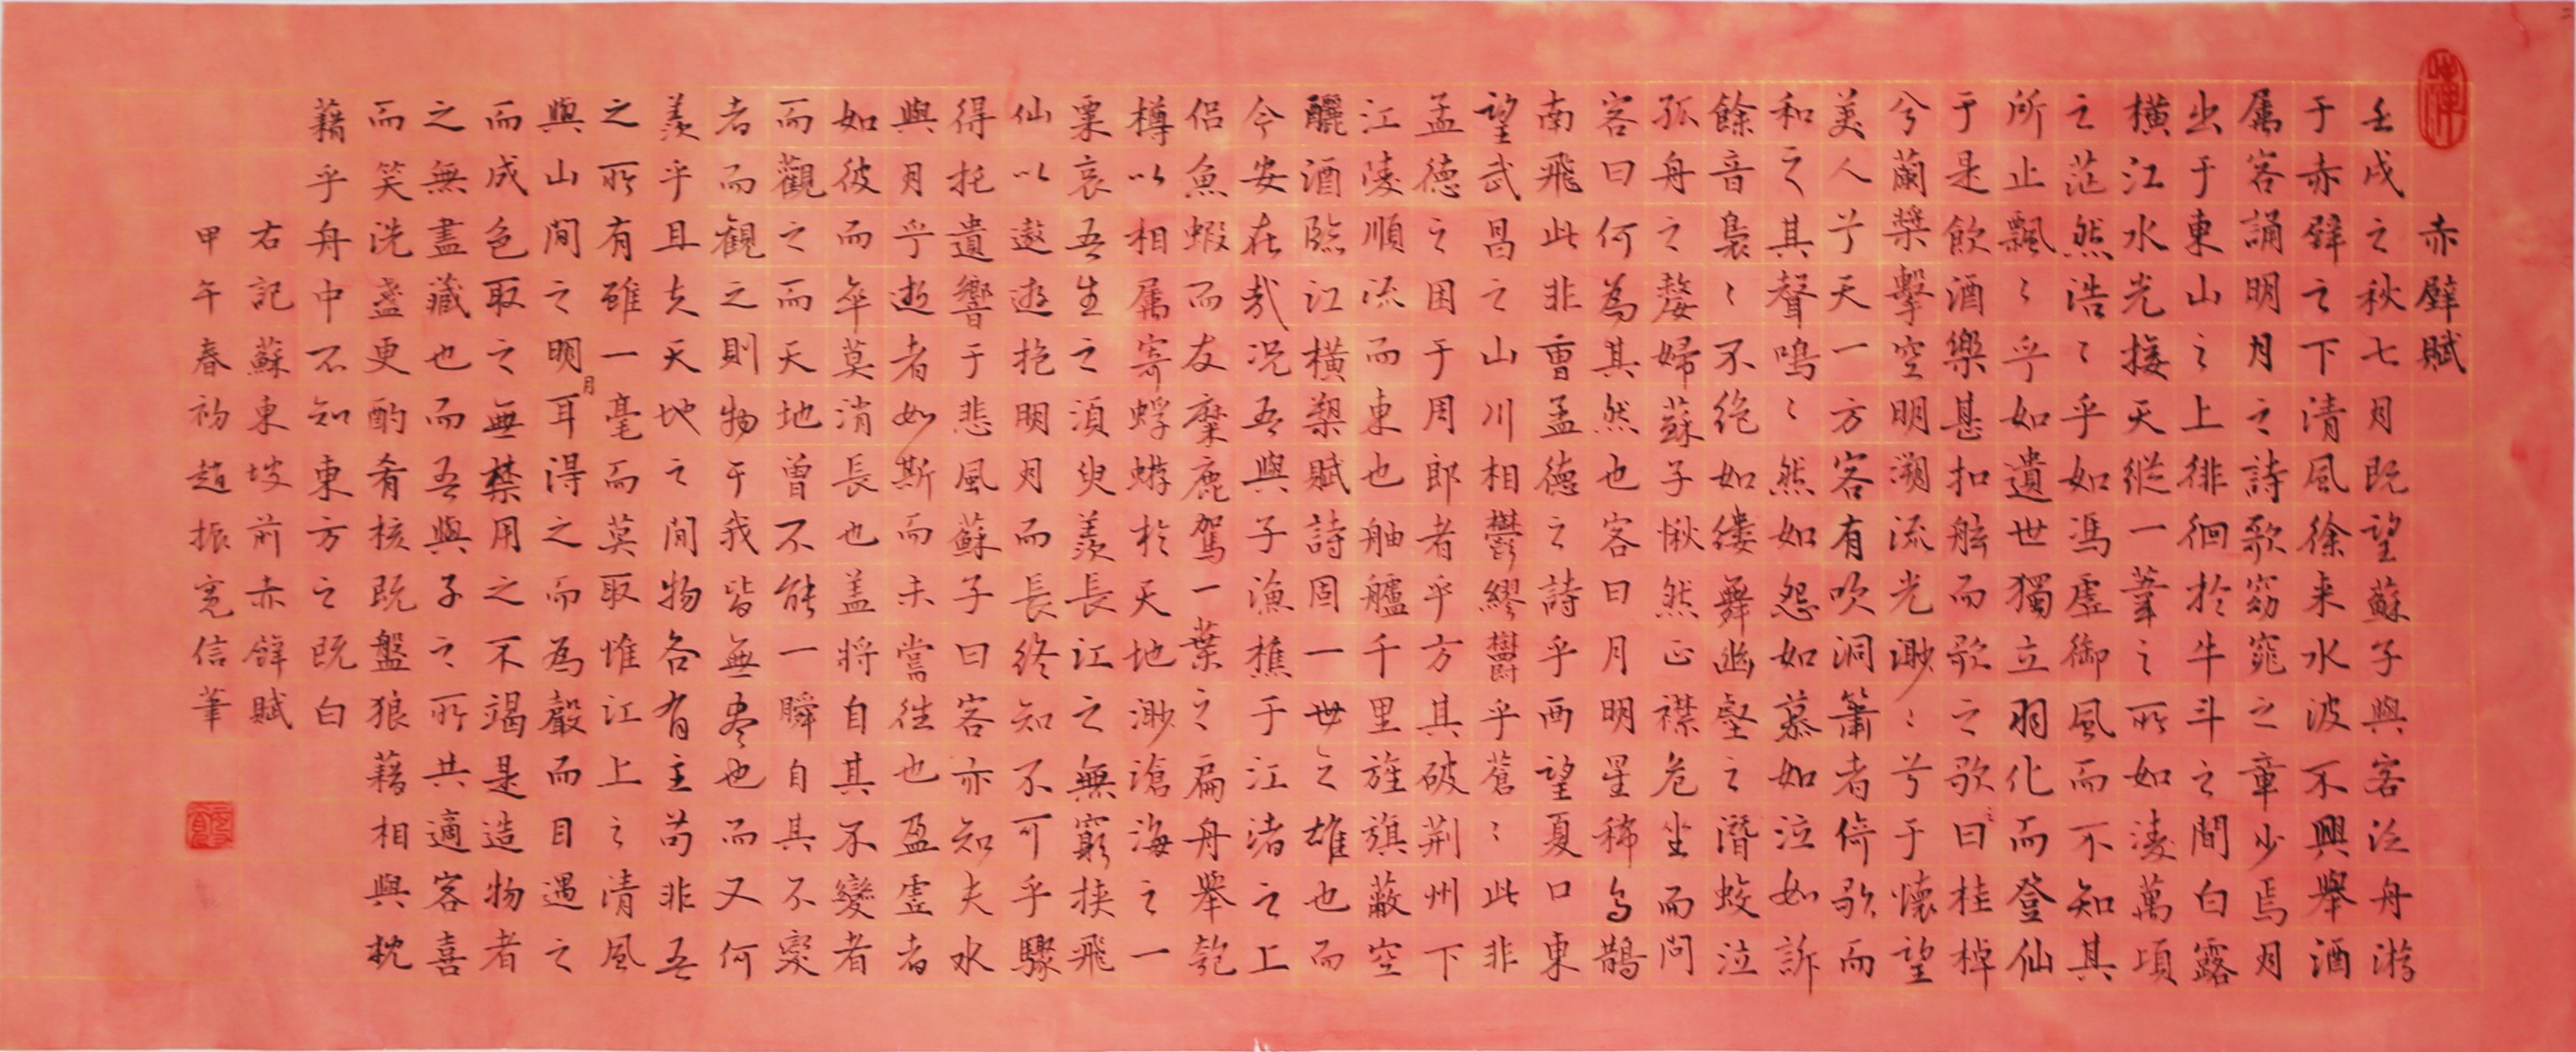 赤壁賦
壬戌之秋七月既望蘇子與客泛舟游
于赤壁之下清風徐来水波不興舉酒
属客誦明月之詩歌窈窕之章少焉月
出于東山之上徘徊於斗牛之間白露
横江水光接天縱一葦之所如凌萬頃
之茫然浩〻乎如馮虛御風而不知其
所止飄〻乎如遺世獨立羽化而登仙
于是飲酒樂甚扣舷而歌之歌曰桂棹
兮蘭槳擊空明溯流光渺〻兮于懷望
美人兮天一方客有吹洞簫者倚歌而
和之其聲鳴〻然如怨如慕如泣如訴
餘音裊〻不绝如缕舞幽壑之潛蛟泣
孤舟之嫠婦蘇子愀然正襟危坐而問
客曰何為其然也客曰月明星稀烏鵲
南飛此非曹孟德之詩乎西望夏口東
望武昌之山川相鬱繆鬱乎蒼〻此非
孟德之困于周郎者乎方其破荆州下
江陵順流而東也舳艫千里旌旗蔽空
釃酒臨江横槊賦詩固一世之雄也而
今安在哉况吾與子漁樵于江渚之上
侣魚蝦而友麋鹿駕一葉之扁舟舉匏
樽以相属寄蜉蝣於天地渺滄海之一
粟哀吾生之須臾羨長江之無窮挟飛
仙以遨遊抱明月而長终知不可乎驟
得托遺響于悲風蘇子曰客亦知夫水
與月乎逝者如斯而未嘗往也盈虛者
如彼而卒莫消長也盖將自其不變者
而觀之而天地曾不能一瞬自其不变
者而觀之則物于我皆無尽也而又何
羨乎且夫天地之間物各有主苟非吾
之所有雖一毫而莫取惟江上之清風
與山間之明月耳得之而為聲而目遇之
而成色取之無禁用之不竭是造物者
之無盡藏也而吾與子之所共適客喜
而笑洗盞更酌肴核既盤狼藉相與枕
藉乎舟中不知東方之既白
右記蘇東坡前赤壁賦
甲午春初趙振寬信筆